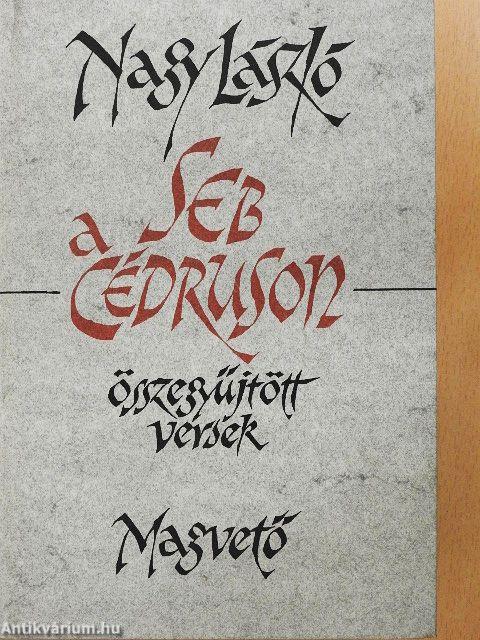 Nagy László
Seb
a
Cédruson
összegyűjtött
versek
Magvető
Antikvárium.hu